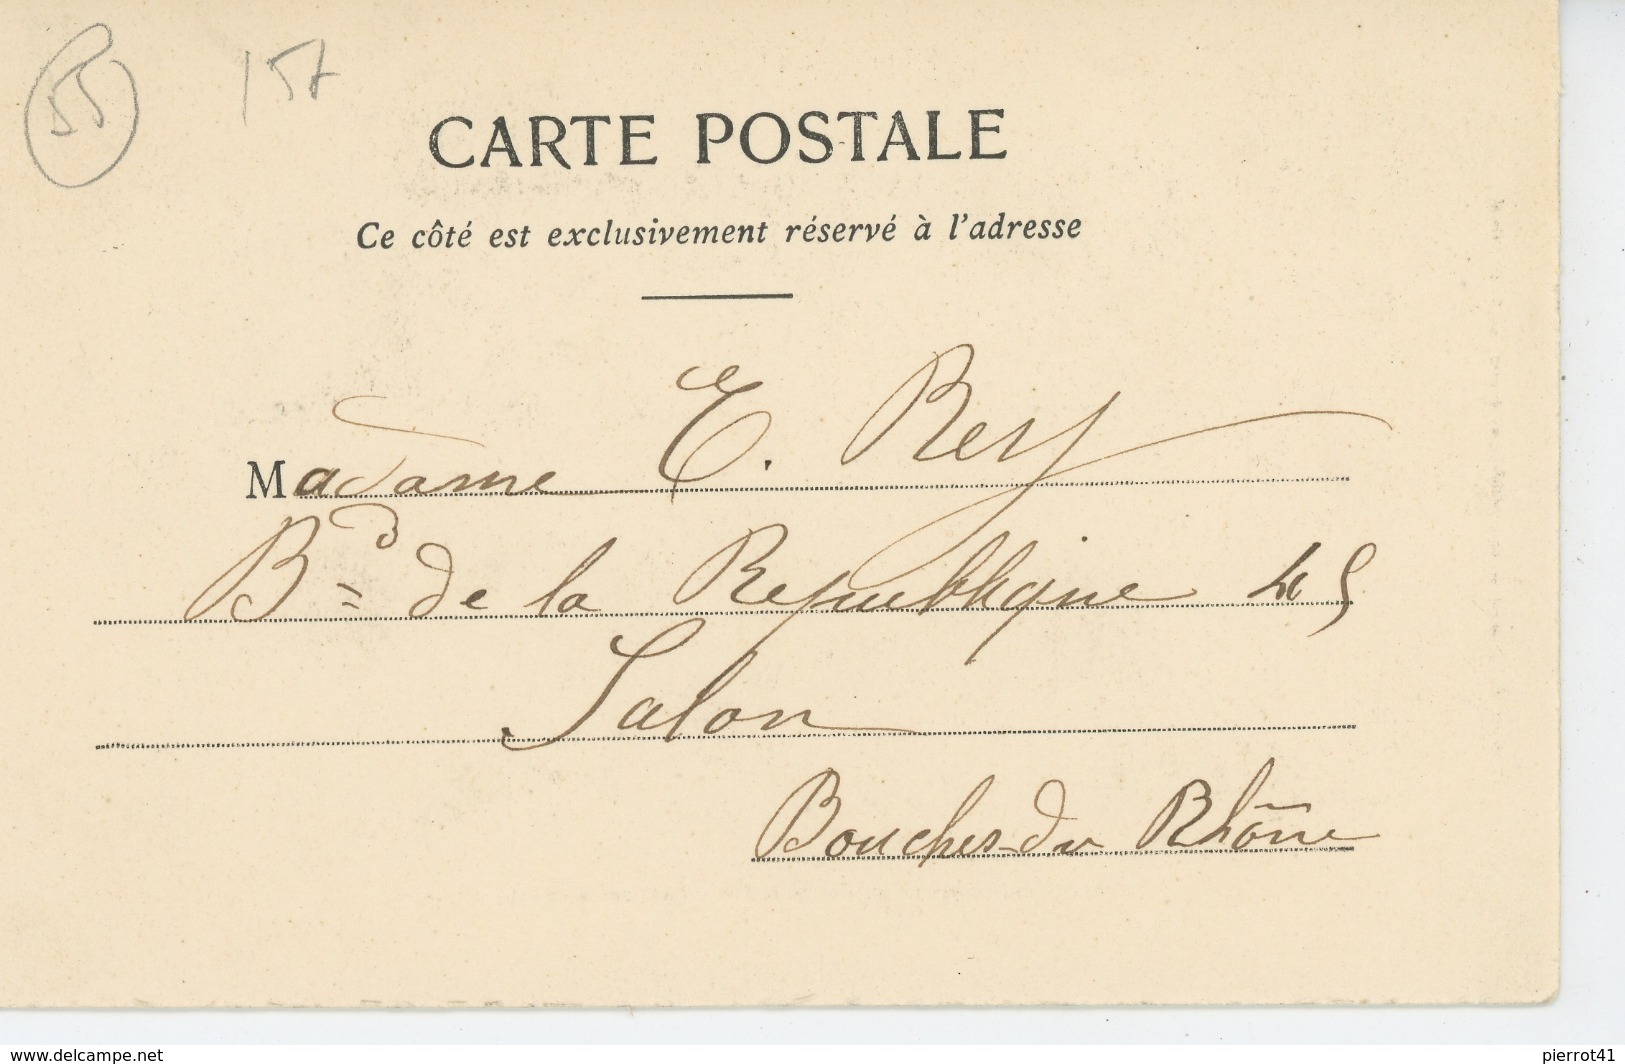 55
157
CARTE POSTALE
Ce côté est exclusivement réservé à l'adresse
Madame E. Rey
Bd de la Republique 45
Salon
Bouches-du Rhône
www.delcampe.net
pierrot41